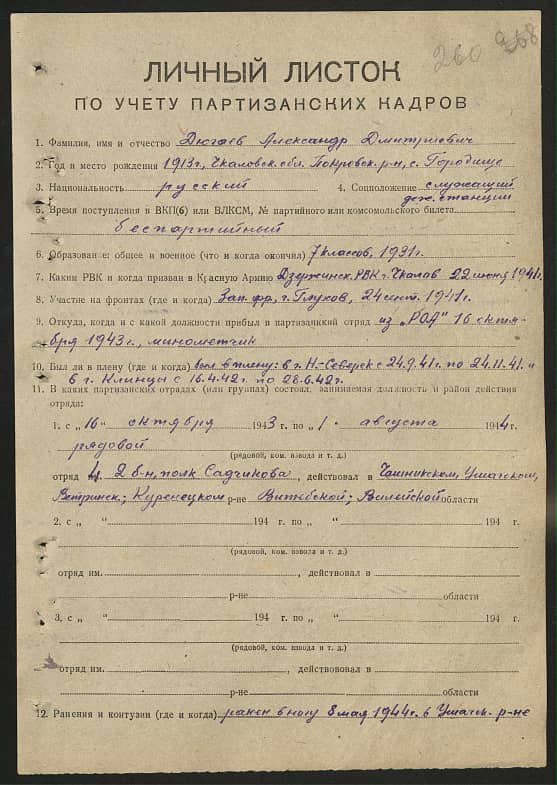 260 268
ЛИЧНЫЙ ЛИСТОК
ПО УЧЕТУ ПАРТИЗАНСКИХ КАДРОВ
1. Фамилия, имя и отчество Дюгаев Александр Дмитриевич
2. Год и место рождения 1913г, Чкаловск. обл. Покровск. р-н, с. Городище
3. Национальность русский 4. Соцположение служащий
жел. станции
5. Время поступления в ВКП(б) или ВЛКСМ, № партийного или комсомольского билета
беспартийный
6. Образование: общее и военное (что и когда окончил) 7 классов, 1931г.
7. Каким РВК и когда призван в Красную Армию Дзержинск. РВК г. Чкалов 22 июня 1941г.
8. Участие на фронтах (где и когда) Зап. фр, г. Глухов, 24 сент. 1941г.
9. Откуда, когда и с какой должности прибыл в партизанский отряд из „РОА" 16 октя-
бря 1943г., минометчик
10. Был ли в плену (где и когда) был в плену: в г. Н-Северск с 24.9.41г. по 24.11.41. и
в г. Клинцы с 16.4.42г. по 28.6.42г.
11. В каких партизанских отрядах (или группах) состоял, занимаемая должность и район действия
отряда:
1. с „16" октября 1943 г. по „1" августа 1944 г.
рядовой
(рядовой, ком. взвода и т. д.)
отряд 4, 2 б-н, полк Садчикова, действовал в Чашникском, Ушачском,
Ветринск.; Куренецком р-не Витебской; Вилейской области
2. с „ " 194 г. по „ " 194 г.
(рядовой, ком. взвода и т. д.)
отряд им. , действовал в
р-не области
3. с „ " 194 г. по „ " 194 г.
(рядовой, ком. взвода и т. д.)
отряд им. , действовал в
р-не области
12. Ранения и контузии (где и когда) ранен в ногу 8 мая 1944г. в Ушачск. р-не